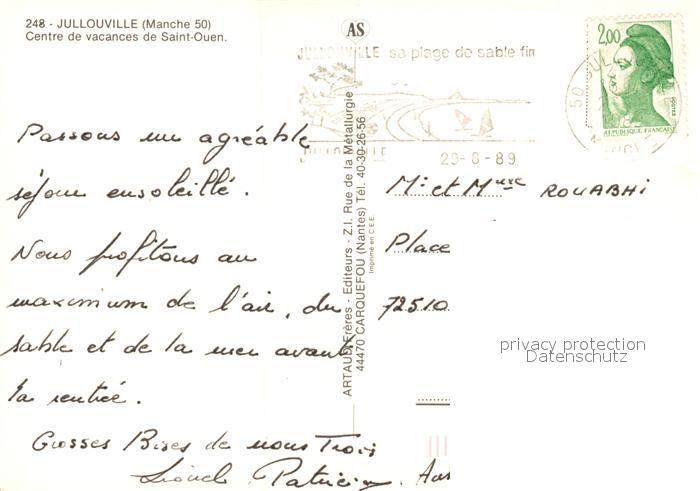 248 - JULLOUVILLE (Manche 50)
Centre de vacances de Saint-Ouen.
AS
JULLOUVILLE sa plage de sable fin
2,00
POSTES
REPUBLIQUE FRANCAISE
JULLOUVILLE
29-8-89
Passons un agréable
séjour ensoleillé.
Nous profitons au
maximum de l'air, du
sable et de la mer avant
la rentrée.
Grosses Bises de nous Trois
Lionel. Patricia.
ARTAUD Frères - Editeurs - Z.I. Rue de la Métallurgie
44470 CARQUEFOU (Nantes) Tél. 40-30-26-56
Imprimé en C.E.E.
Mr et Mme ROUABHI
Place
72510
privacy protection
Datenschutz